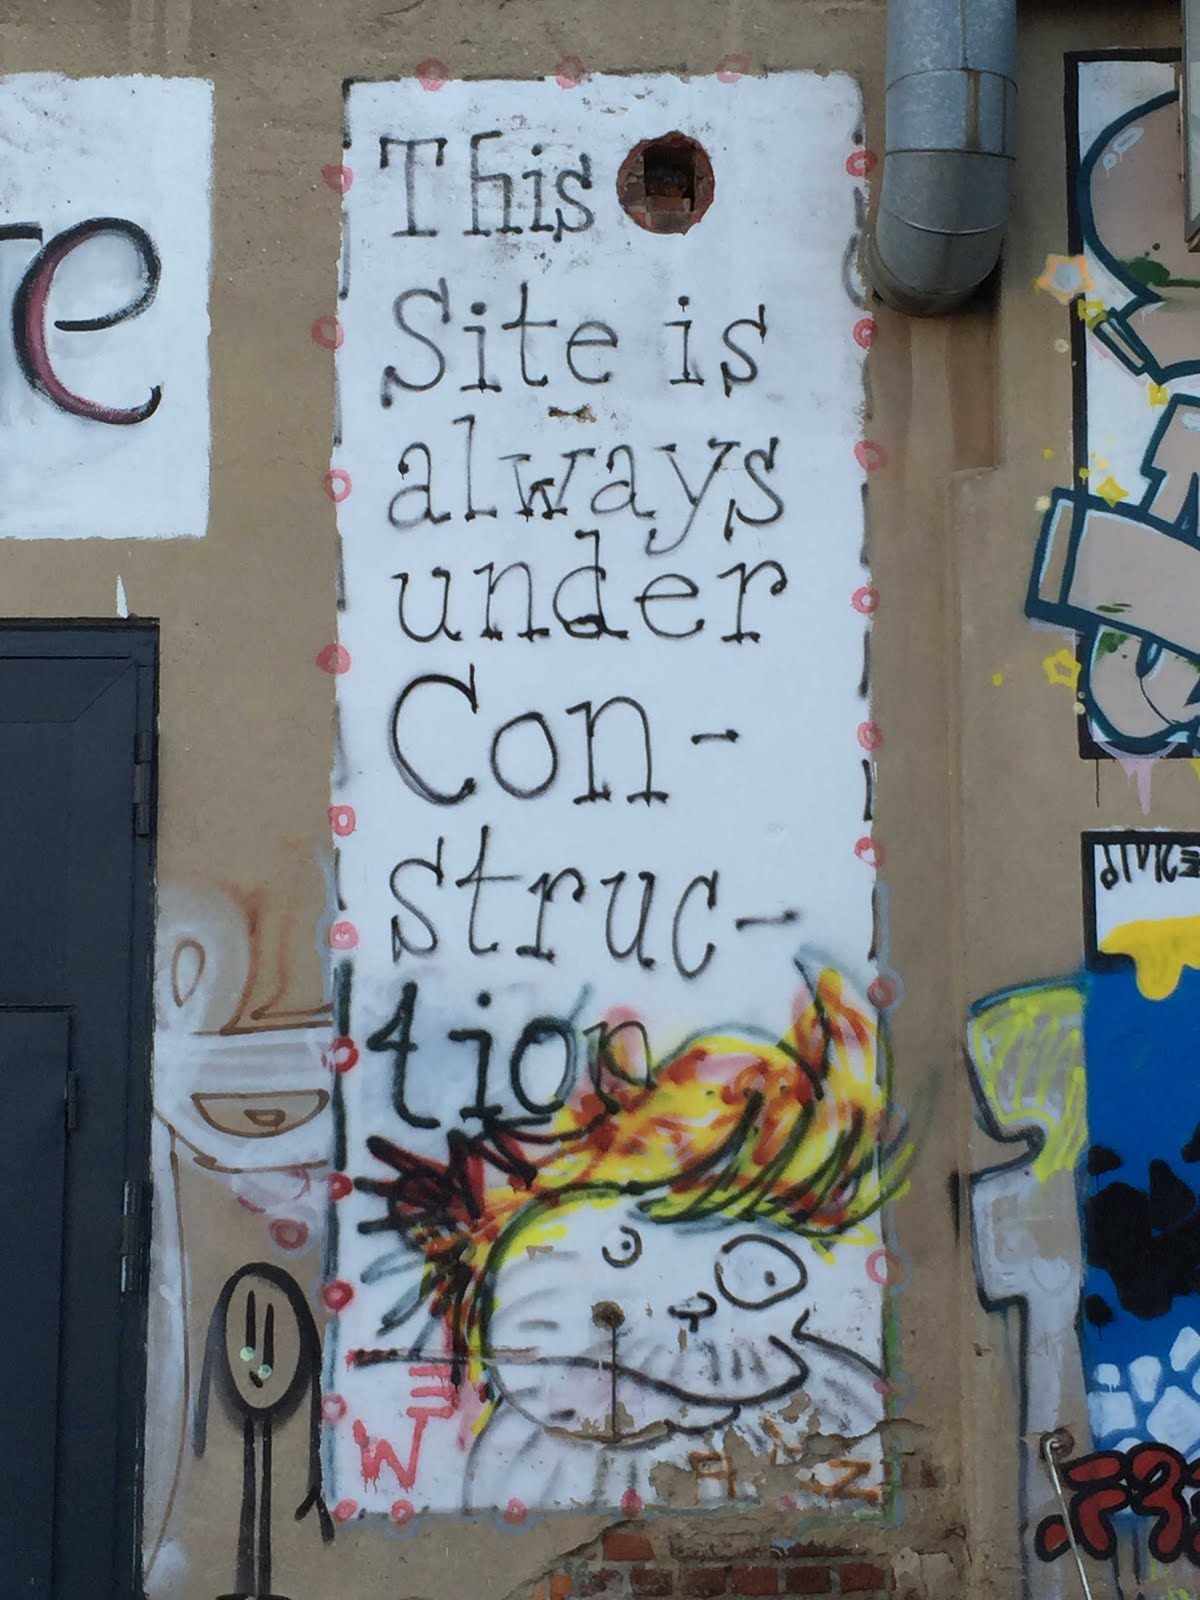 This
Site is
always
under
Con-
struc-
tion